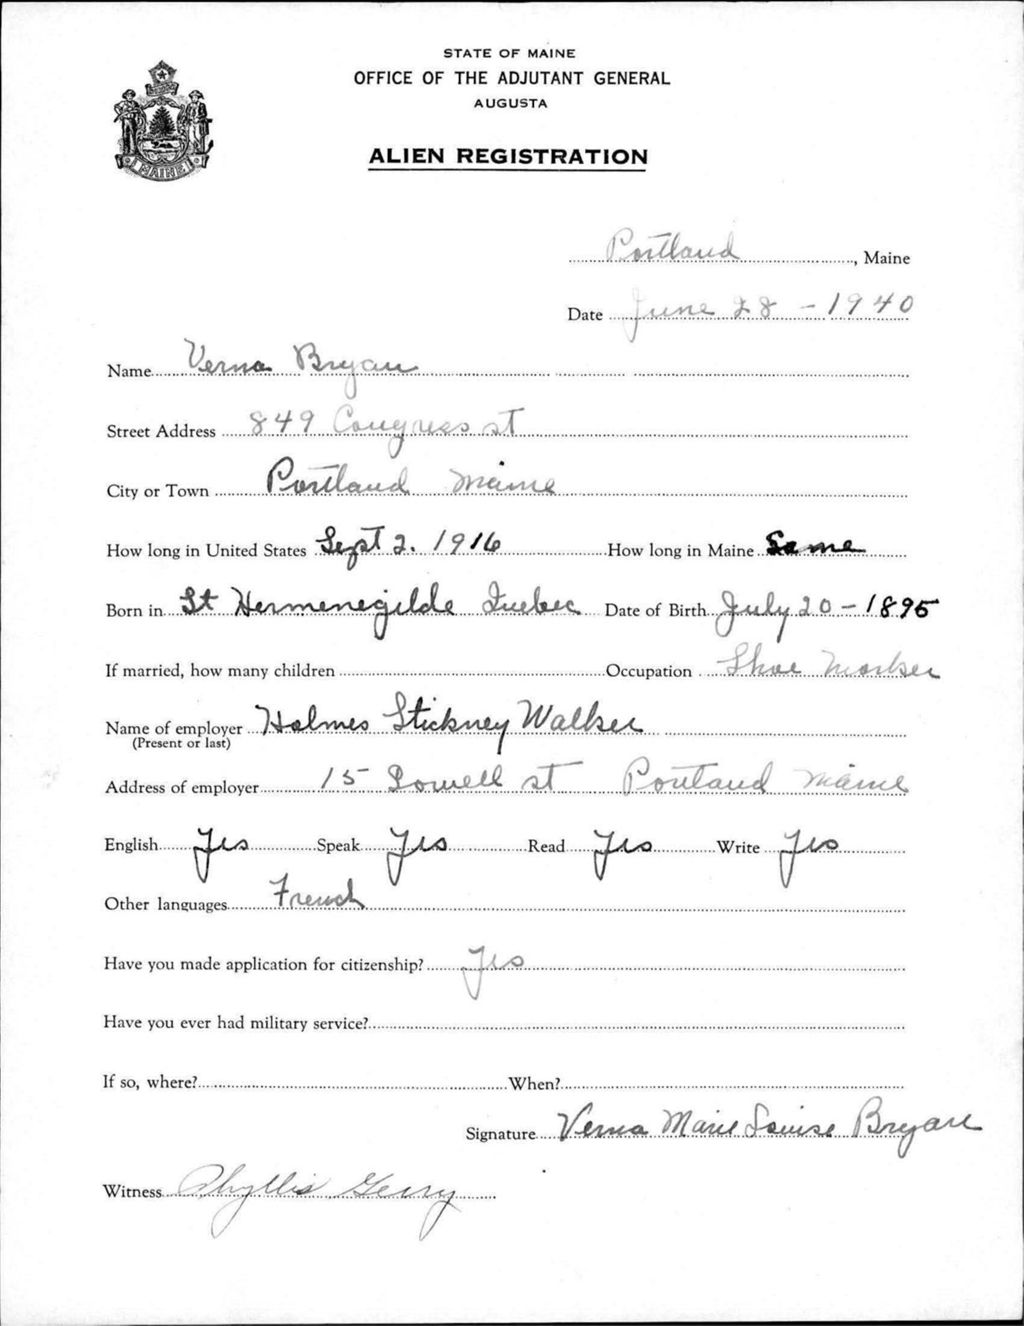 STATE OF MAINE
OFFICE OF THE ADJUTANT GENERAL
AUGUSTA
ALIEN REGISTRATION
MAINE
Portland, Maine
Date June 28 - 1940
Name Verna Bryan
Street Address 849 Congress st
City or Town Portland Maine
How long in United States Sept 2. 1916 How long in Maine Same
Born in St Hermenegilde Quebec Date of Birth July 20 - 1895
If married, how many children Occupation Shoe Worker
Name of employer Holmes Stickney Walker
(Present or last)
Address of employer 15 Lowell st Portland Maine
English Yes Speak Yes Read Yes Write Yes
Other languages French
Have you made application for citizenship? Yes
Have you ever had military service?
If so, where? When?
Signature Verna Marie Louise Bryan
Witness Phyllis Gerry